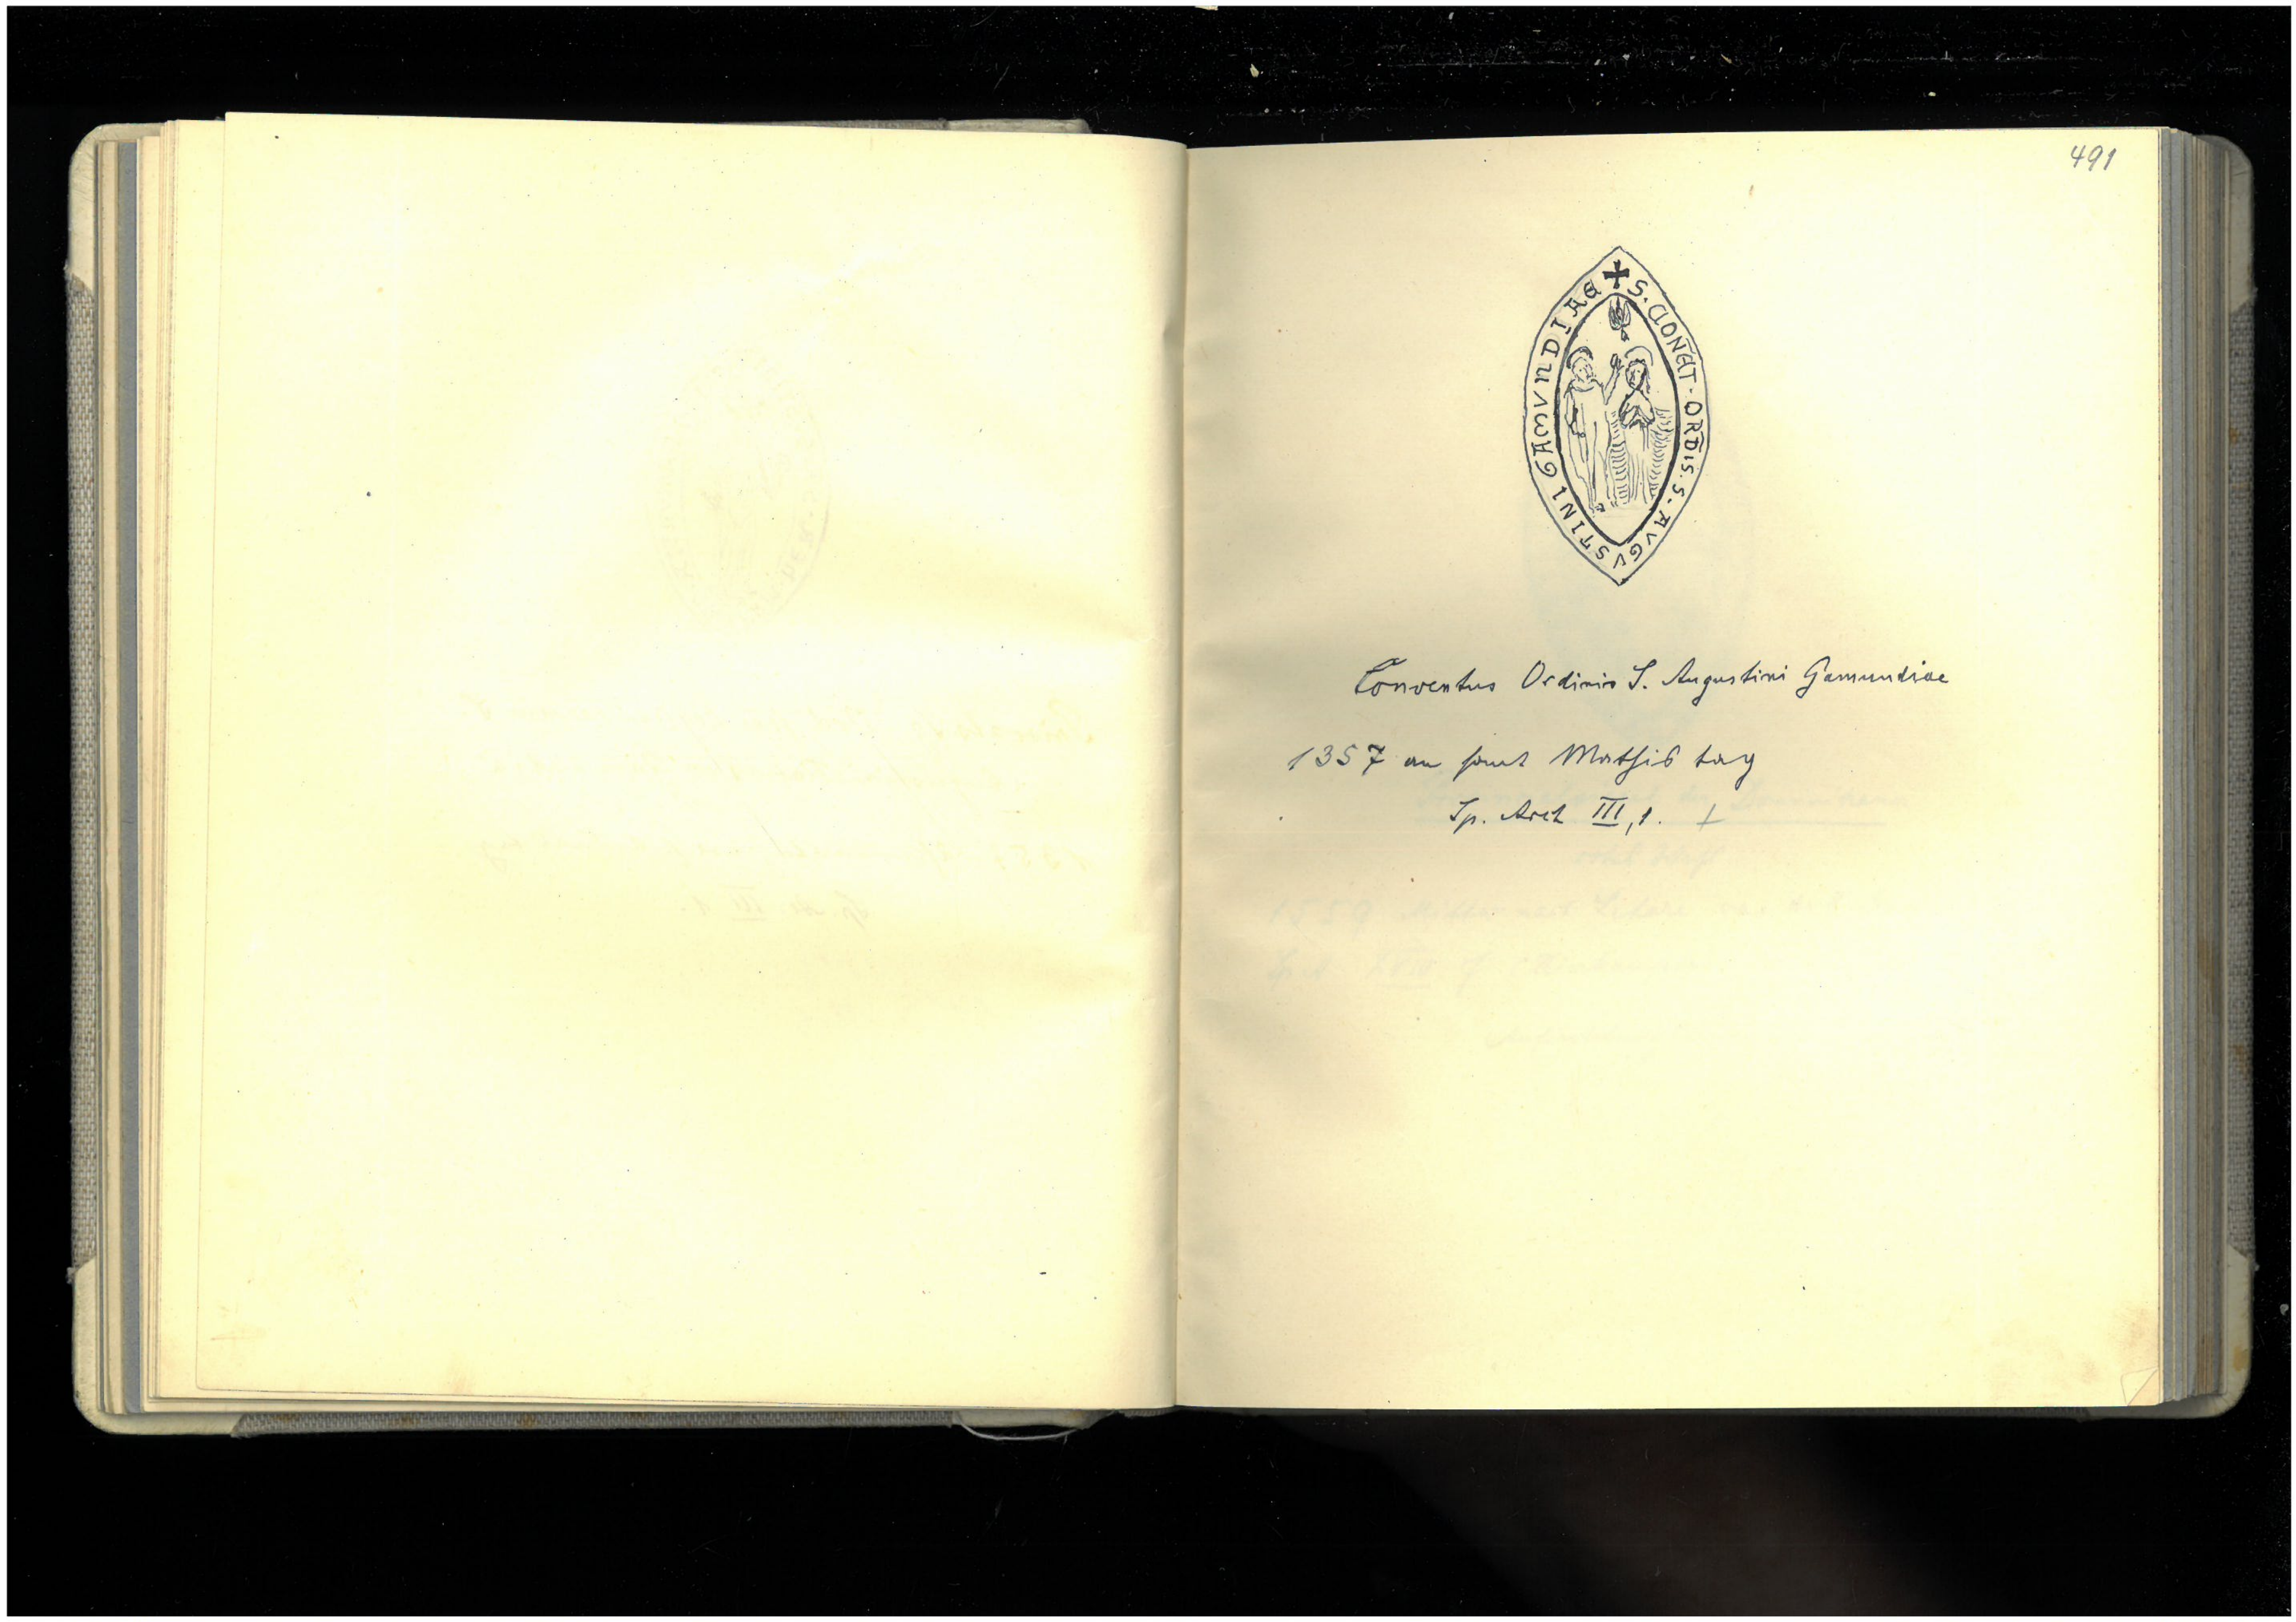 491
✠ S. CONET. ORDIS. S. AVGVSTINI GAMVNDIAE
Conventus Ordinis S. Augustini Gamundiae
1357 an sant Mathis tag
Sp. Arch III, 1. +